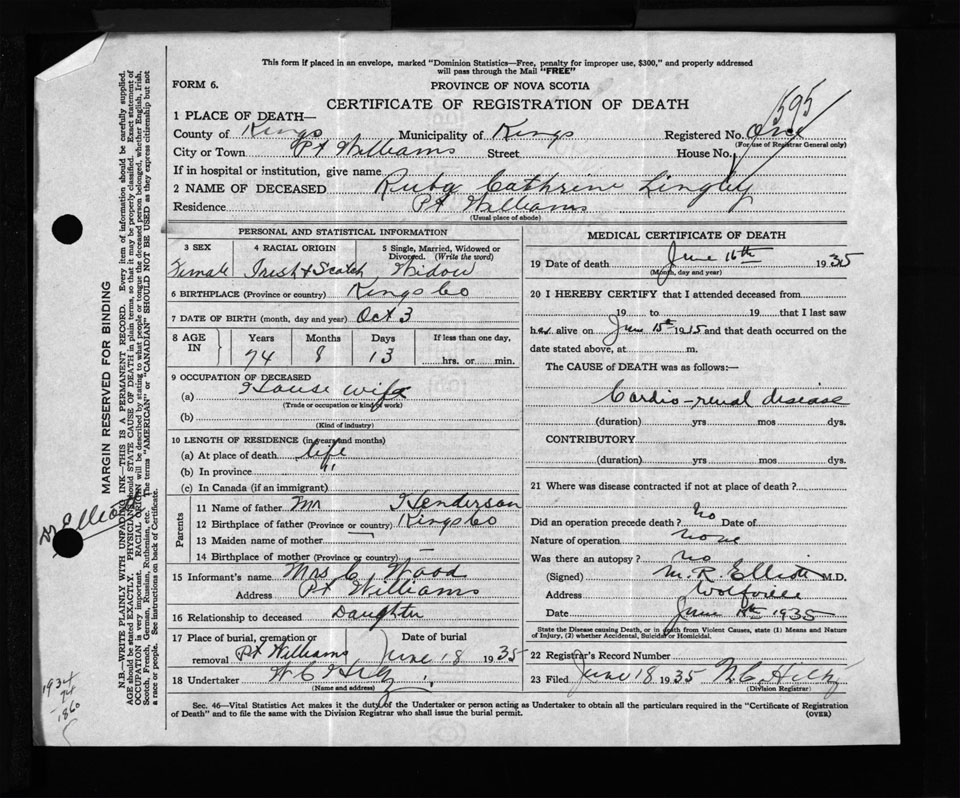 This form if placed in an envelope, marked "Dominion Statistics—Free, penalty for improper use, $300," and properly addressed
will pass through the Mail "FREE"
FORM 6.
PROVINCE OF NOVA SCOTIA
CERTIFICATE OF REGISTRATION OF DEATH
595
1 PLACE OF DEATH—
County of Kings Municipality of Kings Registered No. One
(For use of Registrar General only)
City or Town Pt Williams Street House No.
If in hospital or institution, give name
2 NAME OF DECEASED Ruby Cathrine Lingley
Residence Pt Williams
(Usual place of abode)
PERSONAL AND STATISTICAL INFORMATION
3 SEX 4 RACIAL ORIGIN 5 Single, Married, Widowed or Divorced. (Write the word)
Female Irish & Scotch Widow
6 BIRTHPLACE (Province or country) Kings Co
7 DATE OF BIRTH (month, day and year) Oct 3
8 AGE IN Years Months Days If less than one day,
74 8 13 hrs. or min.
9 OCCUPATION OF DECEASED
(a) House wife
(Trade or occupation or kind of work)
(b)
(Kind of industry)
10 LENGTH OF RESIDENCE (in years and months)
(a) At place of death life
(b) In province "
(c) In Canada (if an immigrant)
Parents
11 Name of father Mr Henderson
12 Birthplace of father (Province or country) Kings Co
13 Maiden name of mother —
14 Birthplace of mother (Province or country) —
15 Informant's name Mrs C Wood
Address Pt Williams
16 Relationship to deceased Daughter
17 Place of burial, cremation or removal Pt Williams Date of burial June 18 1935
18 Undertaker W C Hiltz
(Name and address)
MEDICAL CERTIFICATE OF DEATH
19 Date of death June 16th 1935
(Month, day and year)
20 I HEREBY CERTIFY that I attended deceased from
19 to 19 that I last saw
her alive on June 15th 1935 and that death occurred on
date stated above, at m.
The CAUSE of DEATH was as follows:—
Cardio-renal disease
(duration) yrs mos dys.
CONTRIBUTORY
(duration) yrs mos dys.
21 Where was disease contracted if not at place of death?
Did an operation precede death? No Date of
Nature of operation none
Was there an autopsy? No
(Signed) M. R. Elliott M.D.
Address Wolfville
Date June 1935
State the Disease causing Death, or in death from Violent Causes, state (1) Means and Nature
of Injury, (2) whether Accidental, Suicidal or Homicidal.
22 Registrar's Record Number
23 Filed June 18 1935 W. C. Hiltz
(Division Registrar)
Sec. 46—Vital Statistics Act makes it the duty of the Undertaker or person acting as Undertaker to obtain all the particulars required in the "Certificate of Registration
of Death" and to file the same with the Division Registrar who shall issue the burial permit. (OVER)
MARGIN RESERVED FOR BINDING
N.B.—WRITE PLAINLY WITH UNFADING INK—THIS IS A PERMANENT RECORD. Every item of information should be carefully supplied.
AGE should be stated EXACTLY. PHYSICIANS should STATE CAUSE OF DEATH in plain terms, so that it may be properly classified. Exact statement of
OCCUPATION is very important. RACIAL ORIGIN will be described by stating to what people or tongue the deceased person belonged, whether English, Irish,
Scotch, French, German, Russian, Ruthenian, etc. The terms "AMERICAN" or "CANADIAN" SHOULD NOT BE USED as they express citizenship but not
a race or people. See instructions on back of Certificate.
Elliott
1934
74
1860